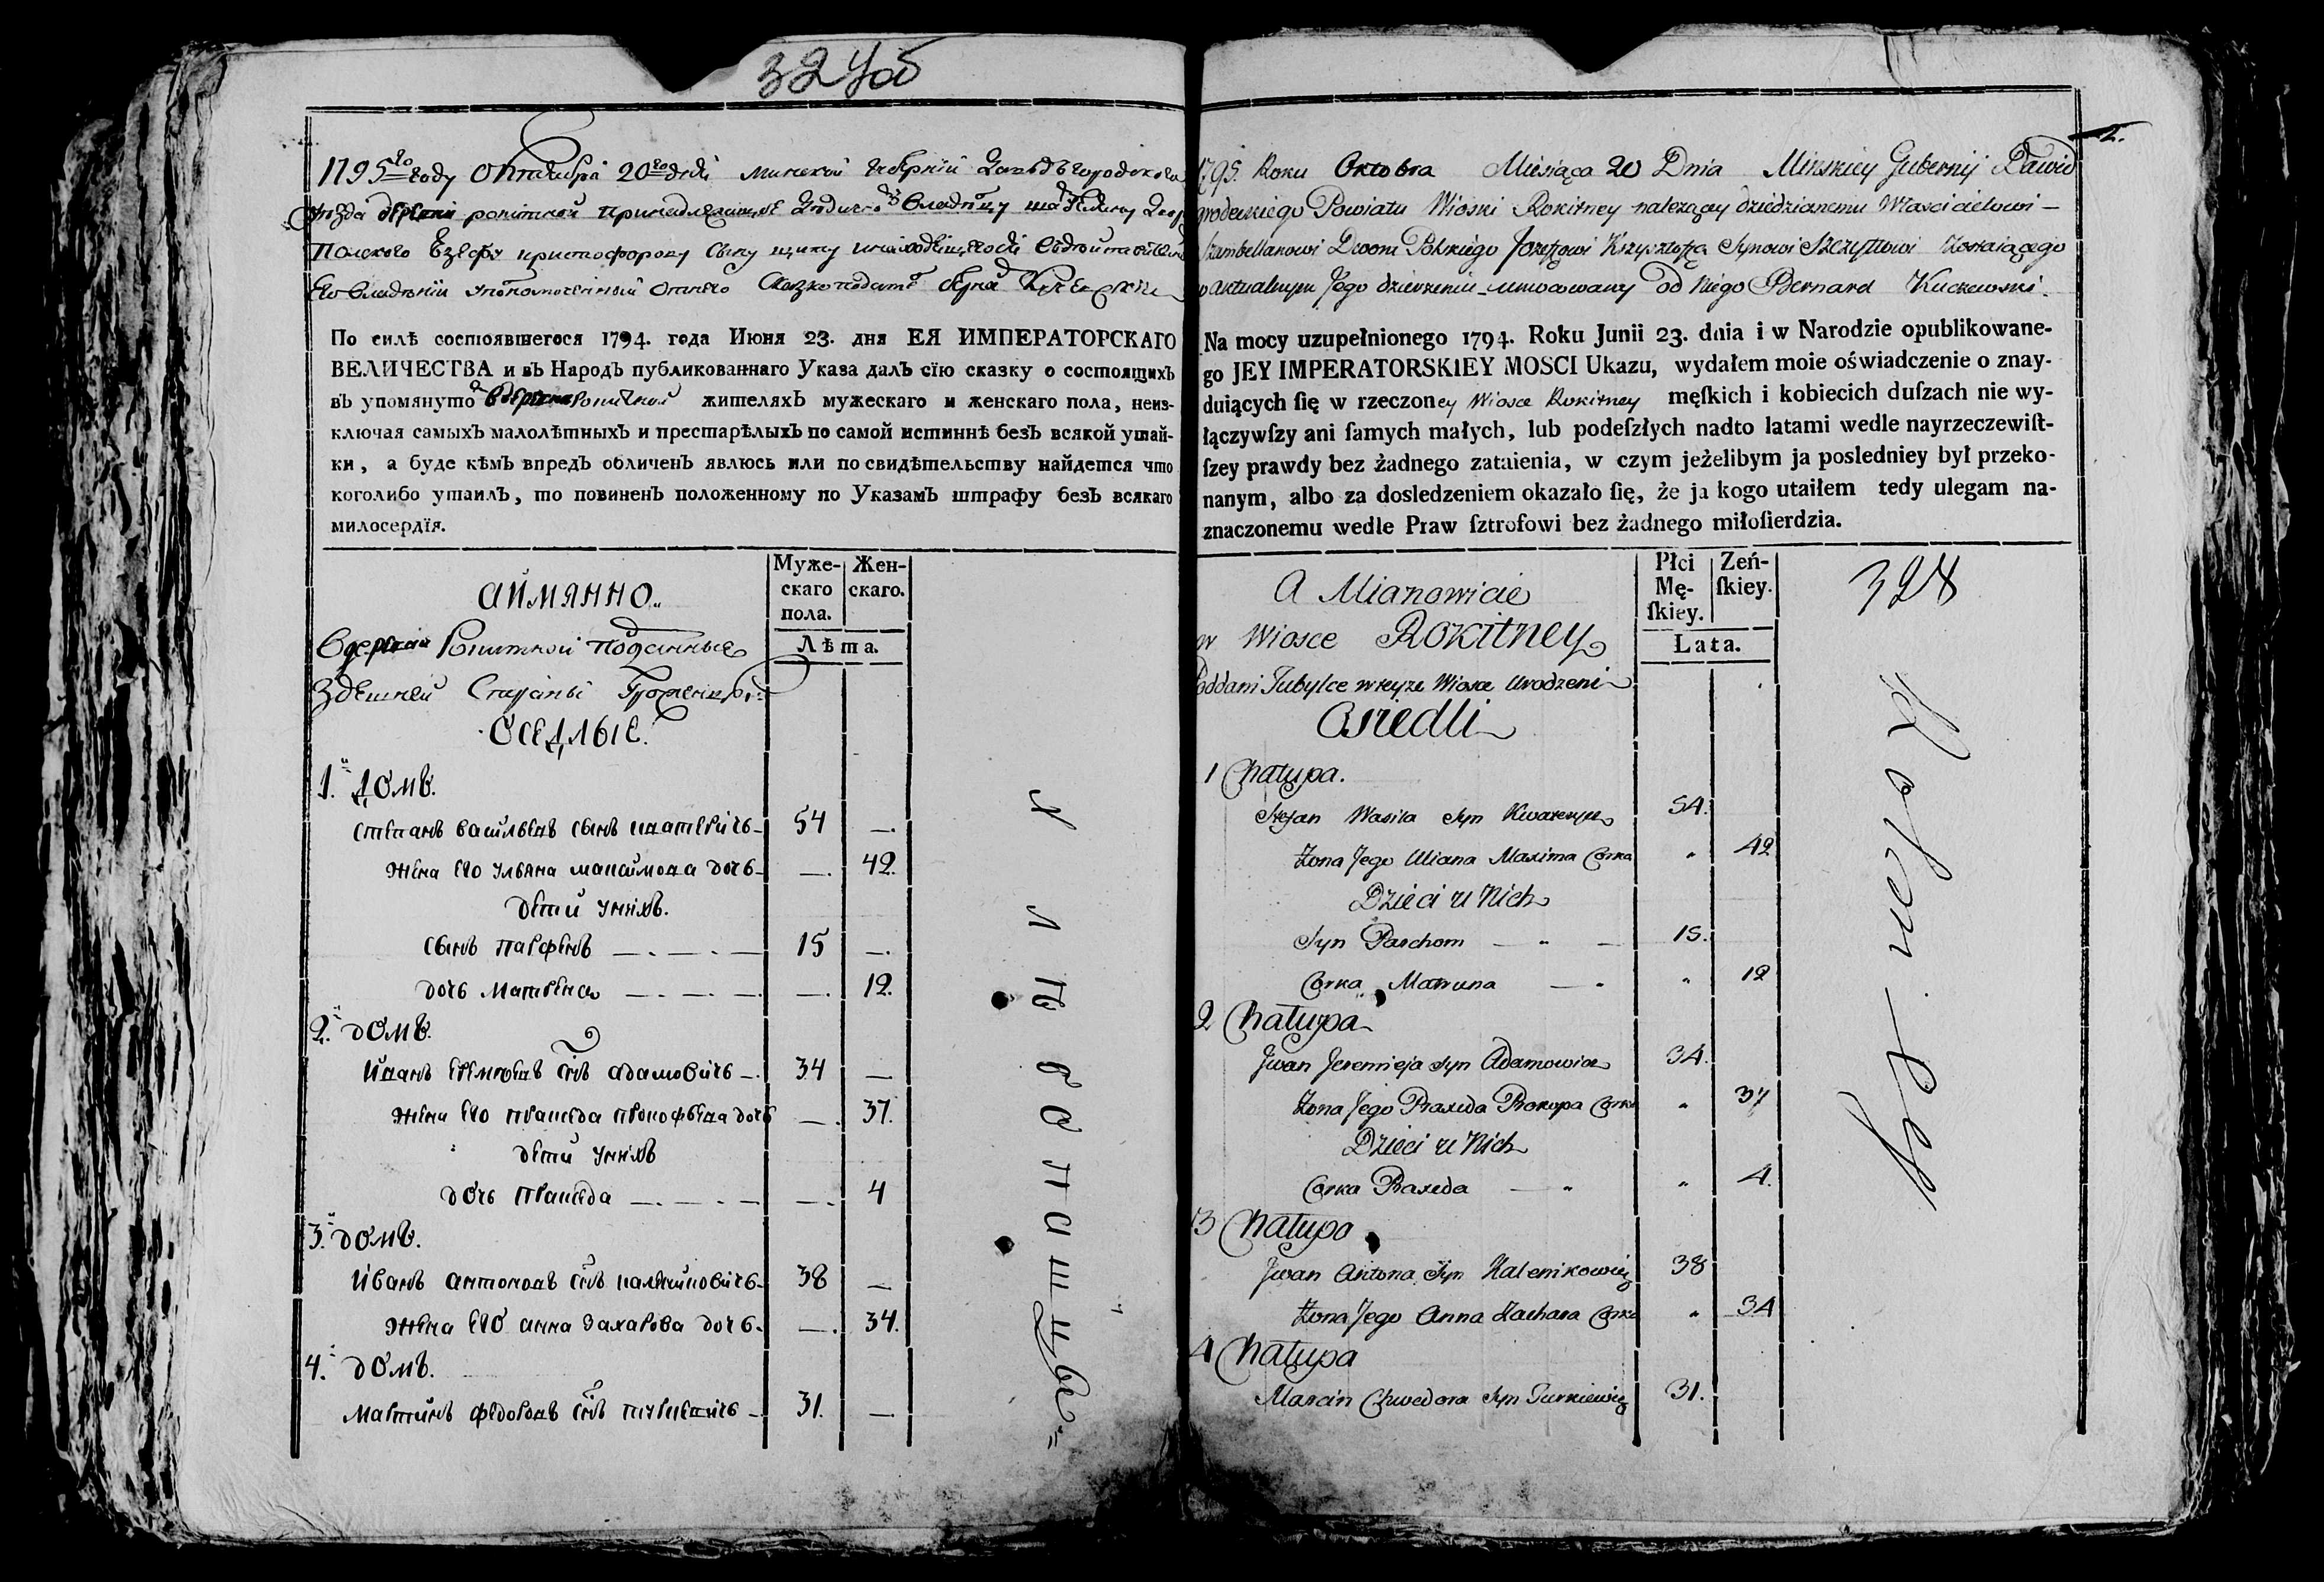 324об
1795го году Октября 20го дня Минской Губернии Давыдъгородскаго
уезда деревни рокитной принадлежащей
Полского Езефу криштофорову сыну щиту
Его владении уполномоченный
По силѣ состоявшегося 1794. года Июня 23. дня ЕЯ ИМПЕРАТОРСКАГО
ВЕЛИЧЕСТВА и въ Народъ публикованнаго Указа далъ сїю сказку о состоящихъ
въ упомянуто й деревне Рокитной жителяхъ мужескаго и женскаго пола, неиз-
ключая самыхъ малолѣтныхъ и престарѣлыхъ по самой истиннѣ безъ всякой утай-
ки, а буде кѣмъ впредъ обличенъ явлюсь или по свидѣтельству найдется что
коголибо утаилъ, то повиненъ положенному по Указамъ штрафу безъ всякаго
милосердїя.
аймянно.
Муже-
скаго
пола.
Жен-
скаго.
Лѣта.
в деревни Рокитной подданные
здешней
оседлые.
1.й домъ.
степанъ васильевъ сынъ 54 —.
жена его ульяна максимова дочь — —. 42.
дети унихъ.
сынъ парфенъ — . — . — 15 —.
дочь матрена — . — . — —. 12.
2.й домъ.
иванъ еремѣевъ снъ адамовичь — 34 —
жена его пракседа прокофьева дочь —. 37.
дети унихъ
дочь пракседа — . — . — —. 4
3.й домъ.
иванъ антоновъ снъ калениковичь — 38 —
жена его анна захарова дочь — —. 34.
4.й домъ.
мартинъ федоровъ снъ 31. —.
2.
1795. Roku Oktobra Miesiąca 20 Dnia Minskiey Gubernij Dawid
grodeckiego Powiatu Wioski Rokitney należącey dziedzicznemu Włascicielowi —
Szambellanowi Dworu Polskiego Jozefowi Krzysztofa Synowi Szczyttowi Zostaiącego
w aktualnym Jego dzierżeniu umocowany od Niego Bernard Kuczewski.
Na mocy uzupełnionego 1794. Roku Junii 23. dnia i w Narodzie opublikowane-
go JEY IMPERATORSKIEY MOSCI Ukazu, wydałem moie oświadczenie o znay-
duiących ſię w rzeczoney Wiosce Rokitney męſkich i kobiecich duſzach nie wy-
łączywſzy ani ſamych małych, lub podeſzłych nadto latami wedle nayrzeczewiſt-
ſzey prawdy bez żadnego zataienia, w czym jeżelibym ja posledniey był przeko-
nanym, albo za dosledzeniem okazało ſię, że ja kogo utaiłem tedy ulegam na-
znaczonemu wedle Praw ſztrofowi bez żadnego miłoſierdzia.
A Mianowicie
Płci
Mę-
ſkiey.
Zeń-
ſkiey.
Lata.
328
w Wiosce Rokitney
Poddani Tubylce w teyze Wiosce Urodzeni
Osiedli
1 Chatupa.
Stefan Wasila Syn 54.
Zona Jego Uliana Maxima Corka " 42
Dzieci u Nich
Syn Parchom — " — 15.
Corka Matruna — " " 12
2 Chatupa
Jwan Jeremieja Syn Adamowicz 34.
Zona Jego Praxeda Prokopa Corka " 37
Dzieci u Nich
Corka Praxeda — " " 4.
3 Chatupa
Jwan Antona Syn Kalenikowicz 38
Zona Jego Anna Zachara Corka " 34
4 Chatupa
Marcin Chwedora Syn Turkiewicz 31.